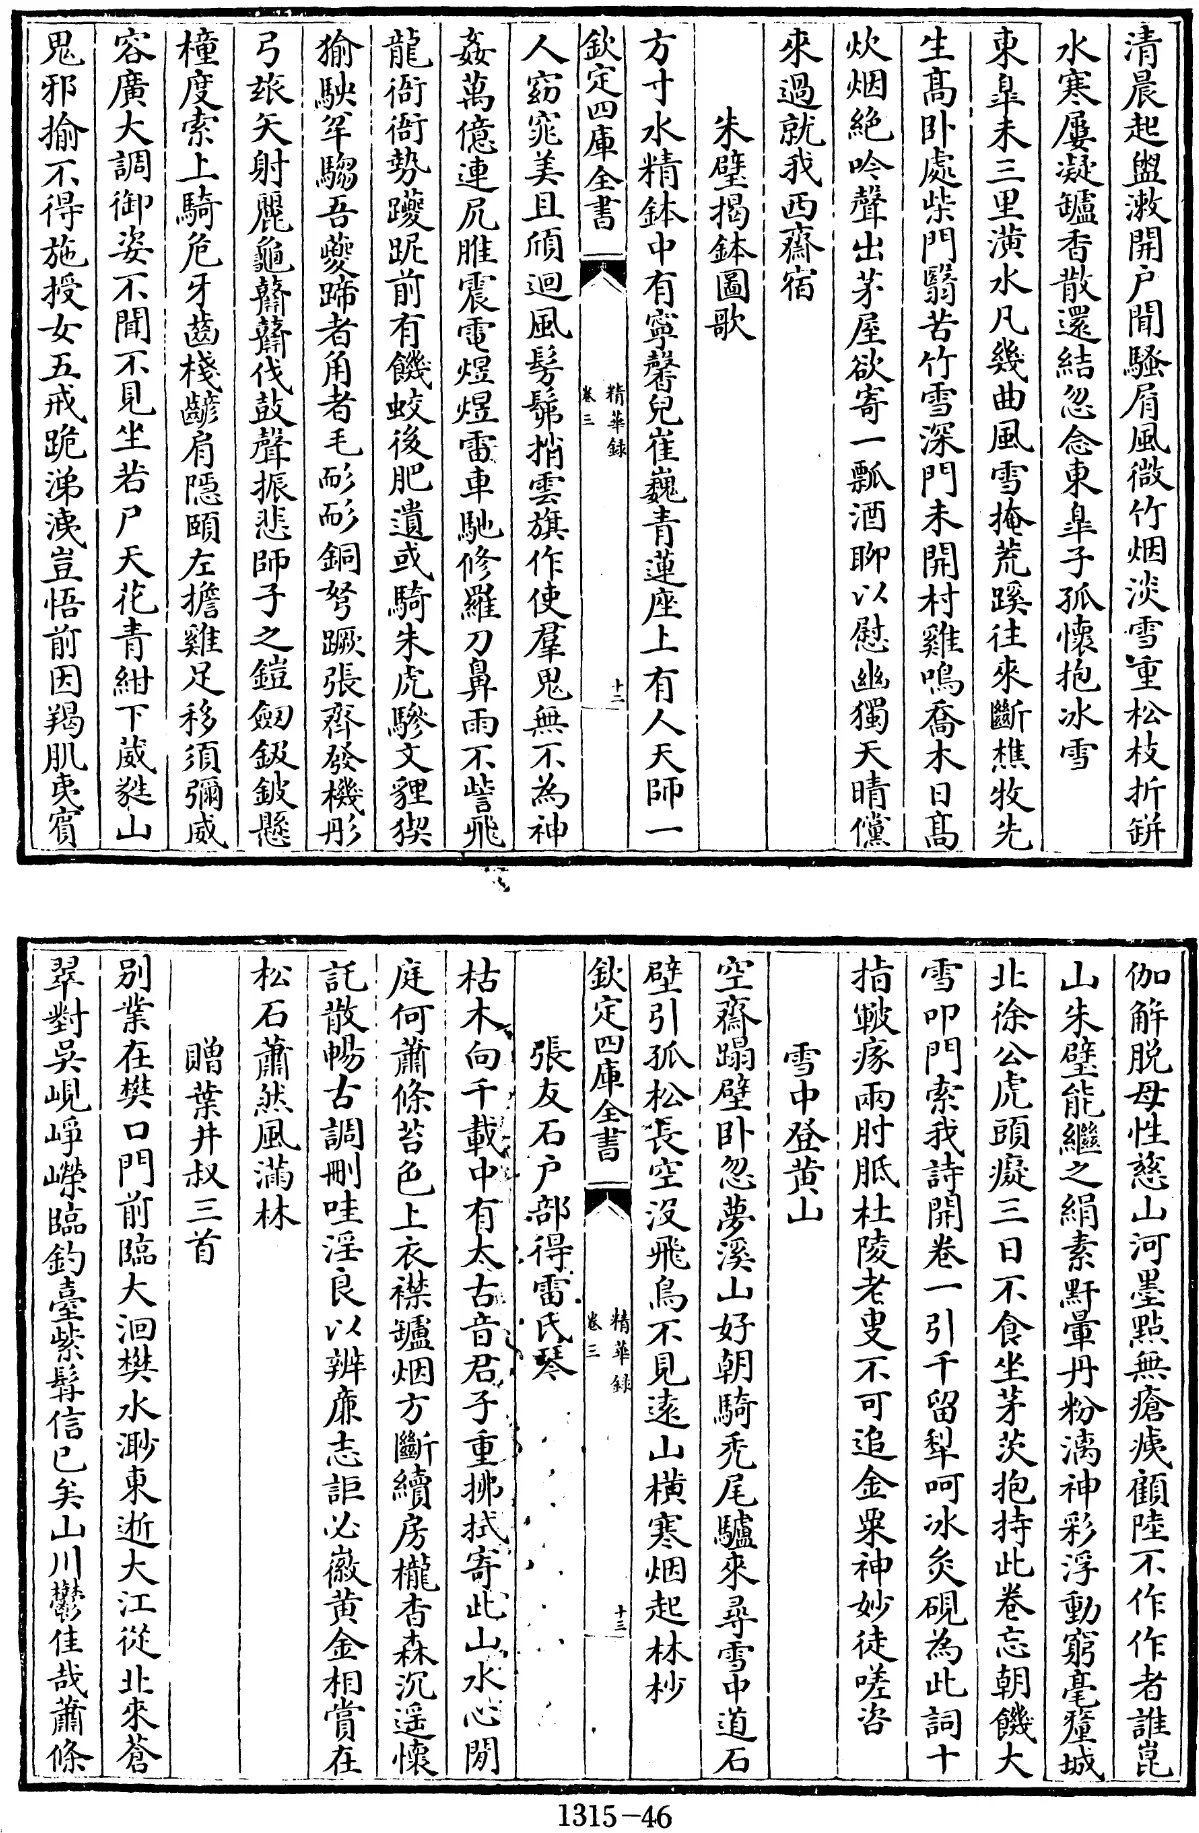 清晨起盥漱開户聞騷屑風微竹烟淡雪重松枝折缾
水寒屢凝鑪香散還結忽念東臯子孤懷抱冰雪
東臯未三里潢水凡幾曲風雪掩荒蹊往來斷樵牧先
生髙卧處柴門翳苦竹雪深門未開村雞鳴喬木日髙
炊烟絶吟聲出茅屋欲寄一瓢酒聊以慰幽獨天晴儻
來過就我西齋宿
朱璧揭鉢圖歌
方寸水精鉢中有寧馨兒崔巍青蓮座上有人天師一
欽定四庫全書
精華録
卷三
十二
人窈窕美且頎迴風髣髴捎雲旗作使羣鬼無不為神
姦萬億連尻脽震電煜煜雷車馳修羅刀鼻雨不訾飛
龍衙衙勢躨跜前有饑蛟後肥遺或騎朱虎驂文貍猰
㺄駚䍐騶吾夔蹄者角者毛耏耏銅弩蹶張齊發機彤
弓玈矢射麗龜鼛鼛伐鼓聲振悲師子之鎧劒鈒鈹懸
橦度索上騎危牙齒棧齴肩隱頤左擔雞足移須彌威
容廣大調御姿不聞不見坐若尸天花青紺下葳蕤山
鬼邪揄不得施授女五戒跪涕洟豈悟前因羯肌夷賔
伽解脱母性慈山河墨㸃無瘡痍顧陸不作作者誰崑
山朱璧能繼之絹素䵟暈丹粉漓神彩浮動窮毫釐城
北徐公虎頭癡三日不食坐茅茨抱持此卷忘朝饑大
雪叩門索我詩開卷一引千留犁呵冰炙硯為此詞十
指皸瘃兩肘胝杜陵老叟不可追金粟神妙徒嗟咨
雪中登黄山
空齋蹋壁卧忽夢溪山好朝騎秃尾驢來尋雪中道石
壁引孤松長空沒飛鳥不見逺山横寒烟起林杪
欽定四庫全書
精華録
卷三
十三
張友石户部得雷氏琴
枯木向千載中有太古音君子重拂拭寄此山水心閒
庭何蕭條苔色上衣襟鑪烟方斷續房櫳杳森沉遥懷
託散暢古調刪哇淫良以辨廉志詎必徽黄金相賞在
松石蕭然風滿林
贈葉井叔三首
别業在樊口門前臨大洄樊水渺東逝大江從北來蒼
翠對吳峴崢嶸臨釣臺紫髯信已矣山川鬱佳哉蕭條
1315-46